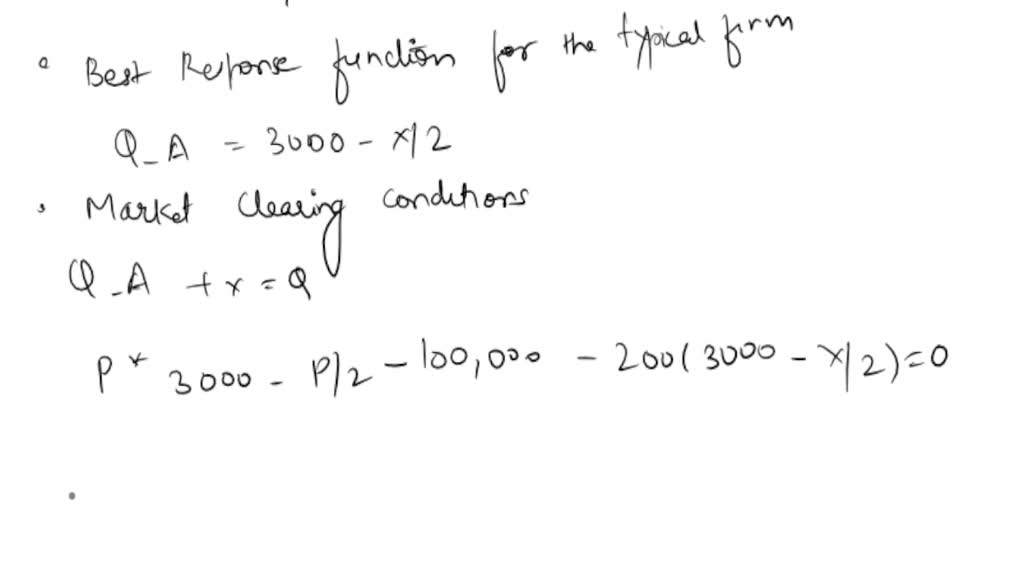 Best Reponse function for the typical firm
Q_A = 3000 - x/2
Market Clearing conditions
Q_A + x = Q
P* 3000 - P/2 - 100,000 - 200(3000 - x/2) = 0